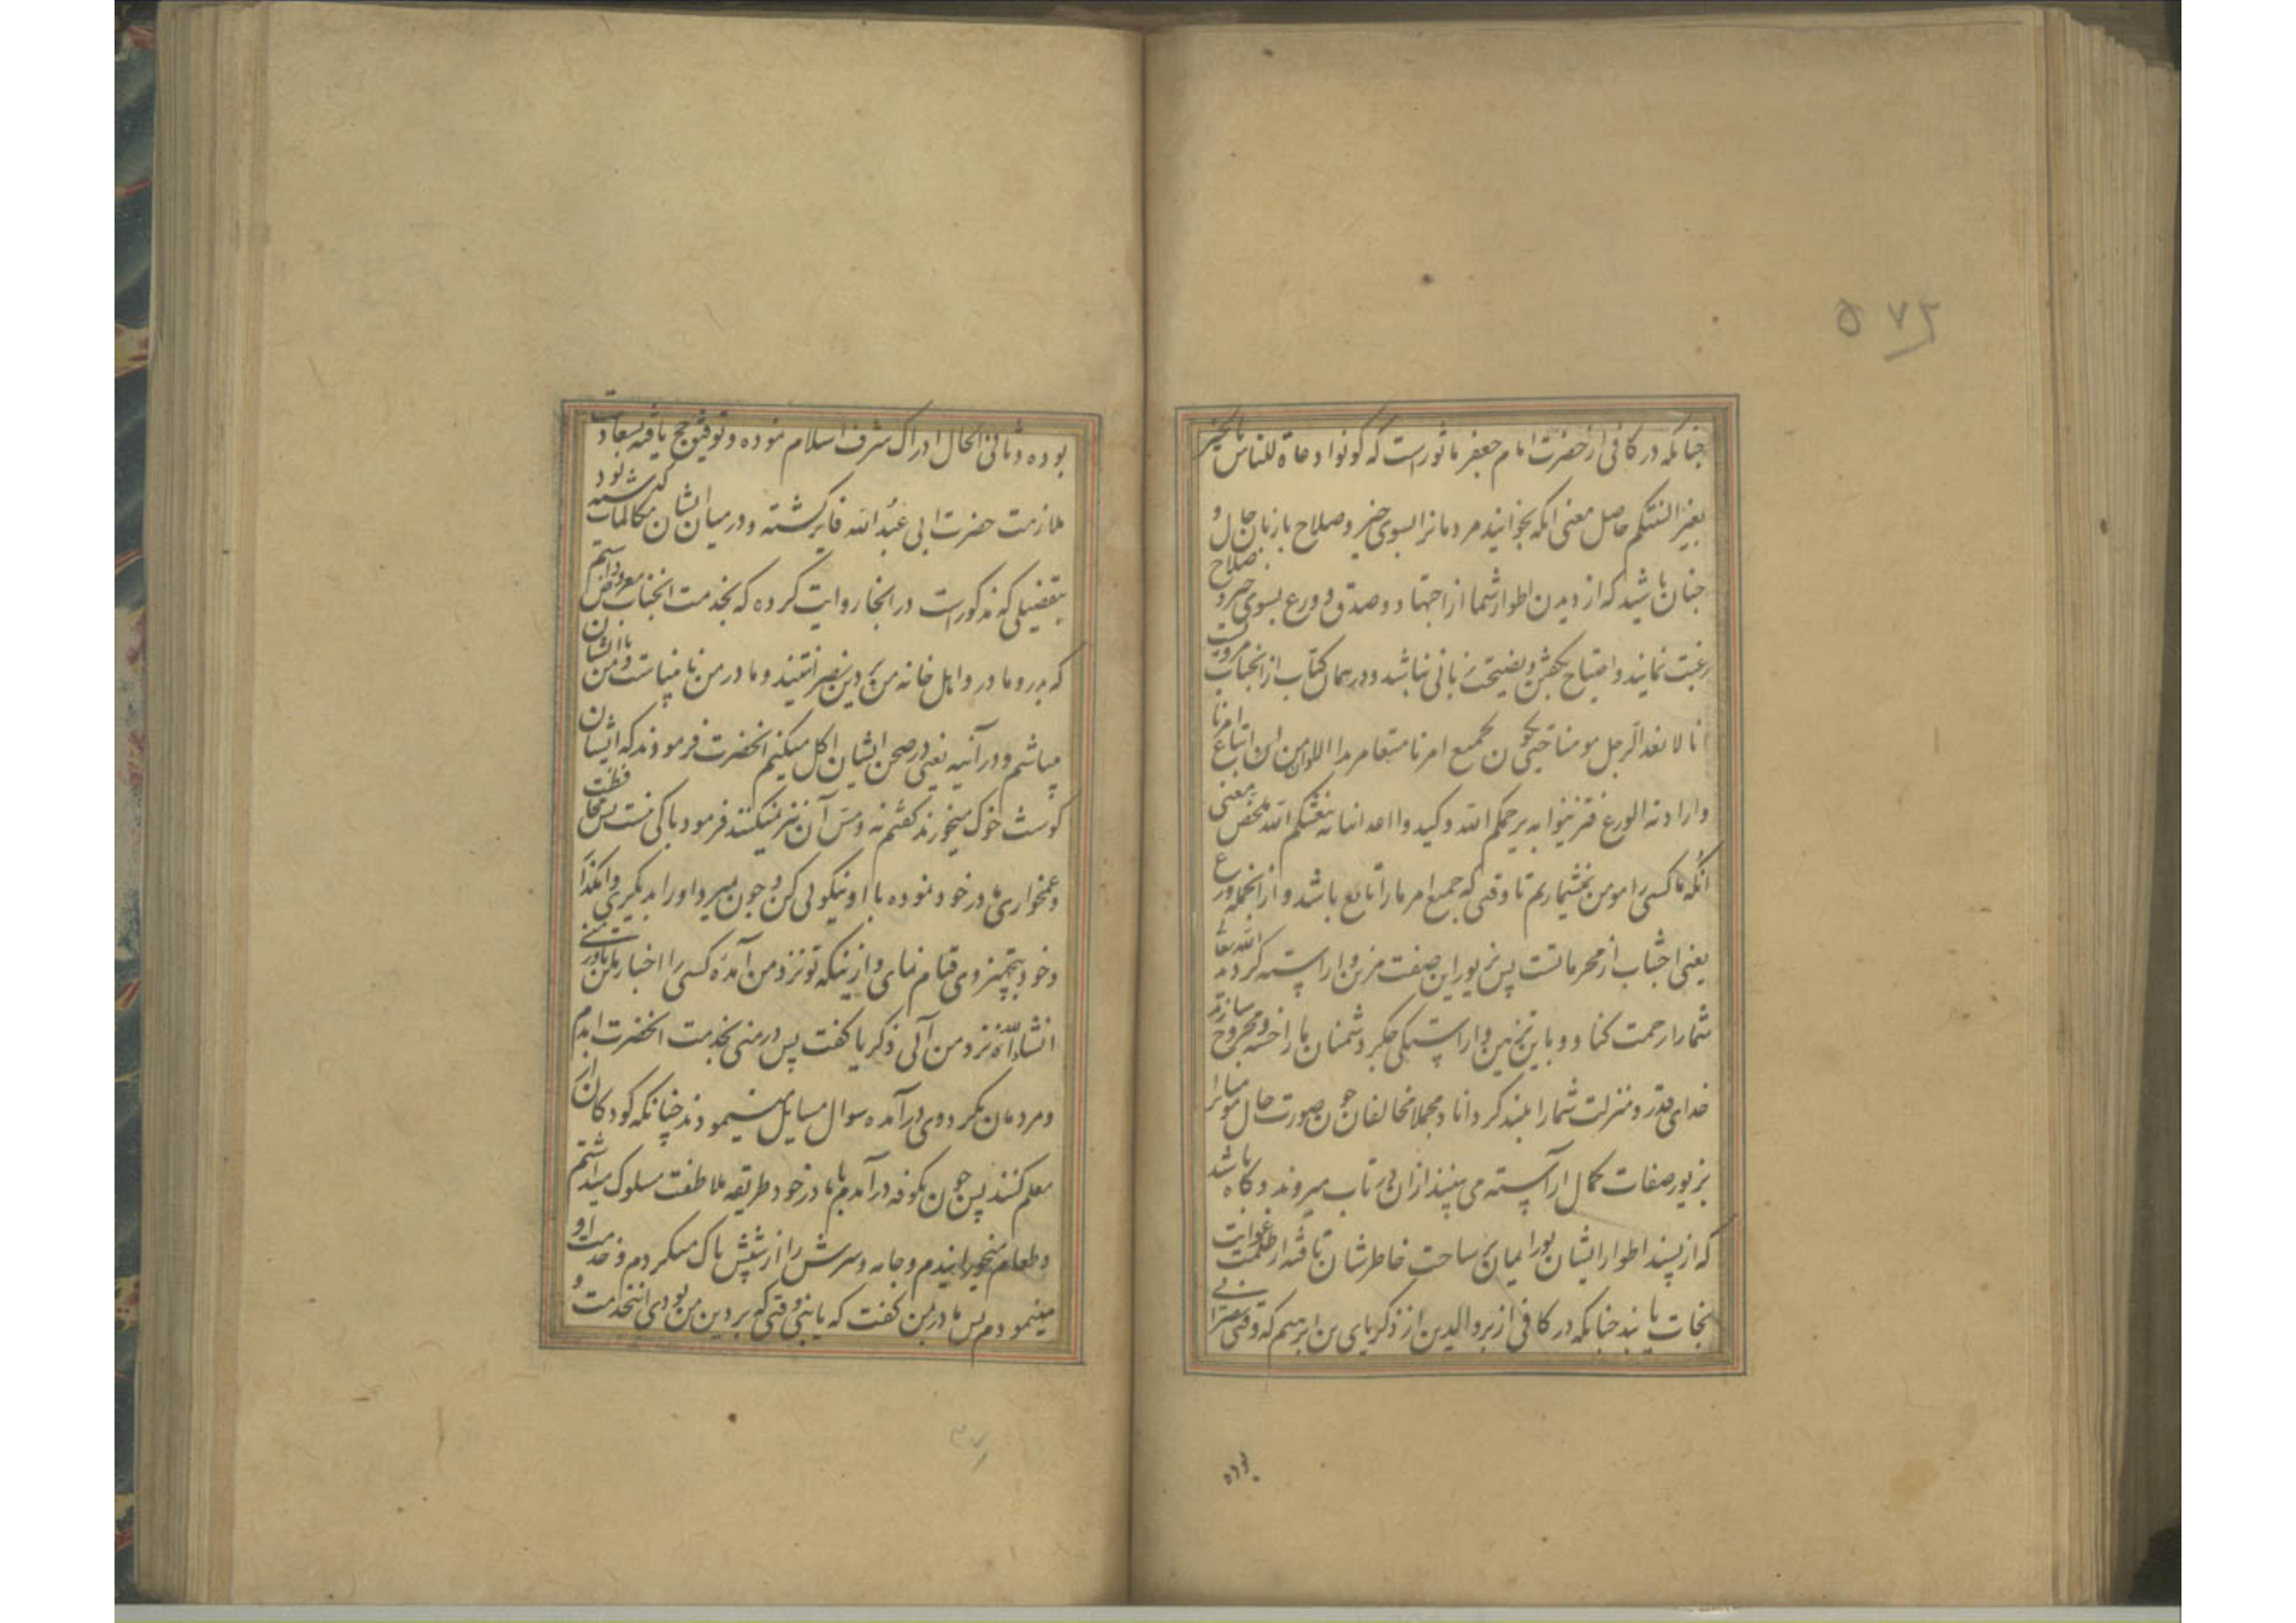 ۵۷۲
چنانکه در کافی از حضرت امام جعفر ماثورست که کونوا دعاة للناس بالخیر
بغیر السنتکم حاصل معنی انکه بخوانید مردمانرا بسوی خیر و صلاح با زبان حال و
چنان باشید که از دیدن اطوار شما از اجتهاد و صدق و ورع بسوی خیر و صلاح
رغبت نمایند و احتیاج بگفتن و نصیحت زبانی نباشد و در همان کتاب از انجناب مرویست
انا لا نعد الرجل مومنا حتی یکون لجمیع امرنا متبعا مریدا الا و ان من اتباع امرنا
و ارادته الورع فتزینوا به یرحمکم الله و کیدوا اعدائنا به ینعشکم الله محض معنی
انکه ما کسی را مومن نمیشماریم تا وقتی که جمیع امر ما را تابع باشد و از انجمله ورع
یعنی اجتناب از محرماتست پس بزیور این صفت مزین و آراسته کردید الله تعا
شما را رحمت کناد و باین تزیین و اراستکی جکر دشمنان ما را خسته و مجروح سازید
خدای قدر و منزلت شما را بلند کرداناد و مجملا مخالفان چون صورت حال مومنانرا
بزیور صفات کمال آراسته می بینند ازان در تاب میروند و کاه باشد
که از پسند اطوار ایشان نور ایمان بر ساحت خاطرشان تافته از ظلمت غوایت
نجات یابند چنانکه در کافی از بر والدین از ذکریای بن ابرهیم که وقتی نصرانی
بوده و ثانی الحال ادراک شرف اسلام نموده و توفیق حج یافته بسعادت
ملازمت حضرت ابی عبد الله فایز کشته و در میان ایشان مکالمات کذشته بود
بتفصیلی که مذکورست در انجا روایت کرده که بخدمت انجناب معروض داشتم
که پدر و مادر و اهل خانه من بر دین نصرانیتند و مادر من نابیناست و من با ایشان
میباشم و در آنیه یعنی در صحن ایشان اکل میکنم انحضرت فرمودند که ایشان
کوشت خوک میخورند کفتم نه و مس آن نیز نمیکنند فرمود باکی نیست پس محافظت
و غمخواری مادر خود نموده با او نیکویی کن و چون بمیرد او را بدیکری وامکذار
و خود بتجهیز وی قیام نمای و از اینکه تو نزد من آمدۀ کسی را اخبار مکن تا در منی
انشاء الله نزد من آئی ذکریا کفت پس در منی بخدمت انحضرت امدم
و مردمان بکرد وی درآمده سوال مسایل مینمودند چنانکه کودکان از
معلم کنند پس چون بکوفه درآمدم با مادر خود طریقه ملاطفت مسلوک میداشتم
و طعام میخورانیدم و جامه و سرش را از شپش پاک میکردم و خدمت او
مینمودم پس مادر بمن کفت که یا بنی وقتی که بر دین من بودی اینخدمت و